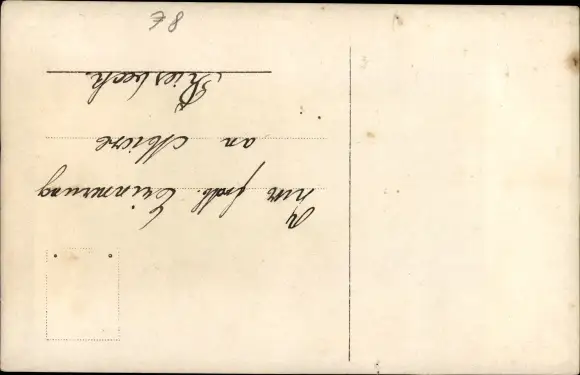 Zur frdl. Erinnerung
an Miere
Riesbeck.
8€